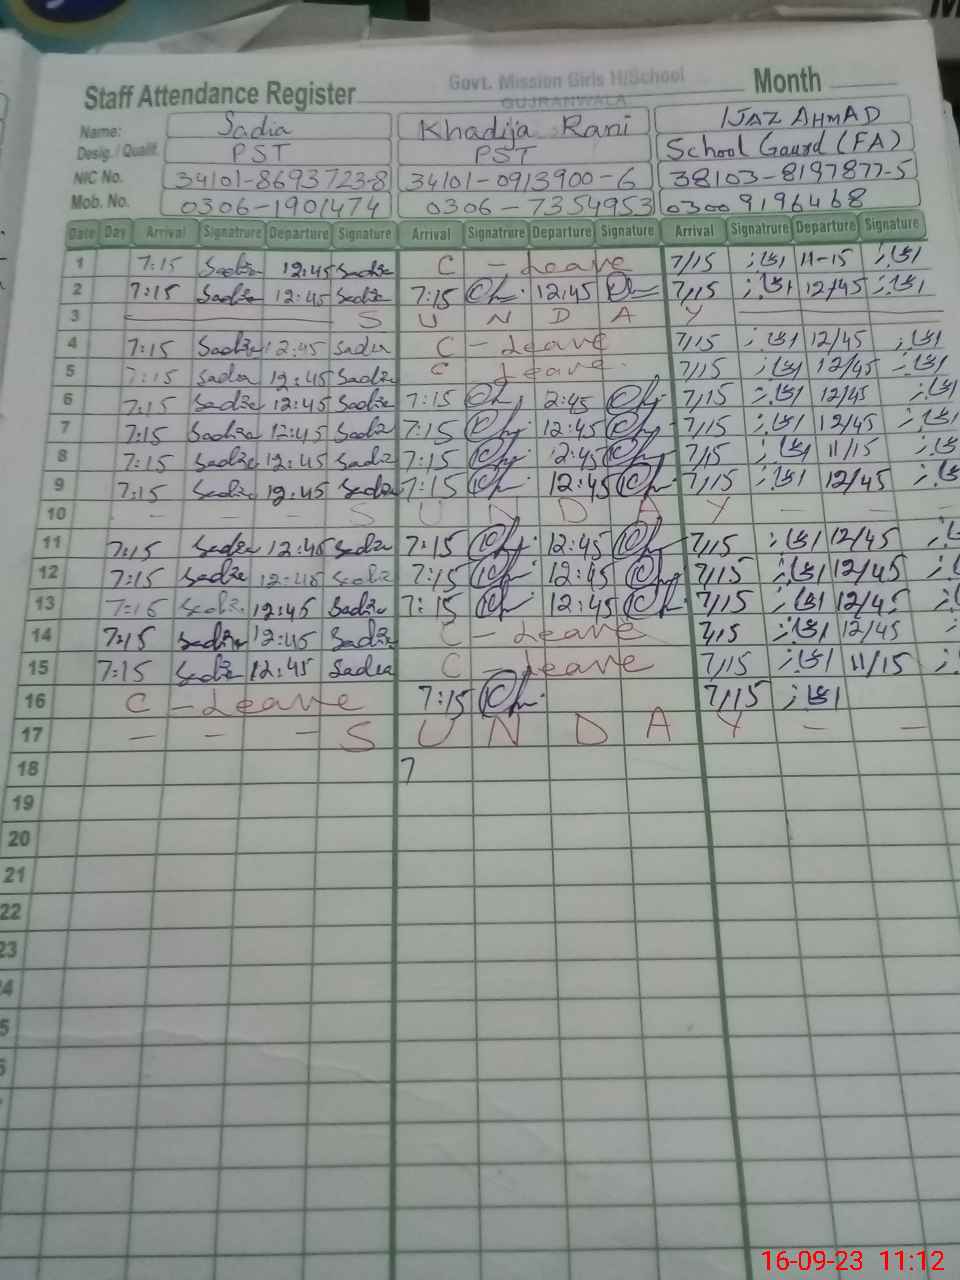 Staff Attendance Register Govt. Mission Girls H/School Month
GUJRANWALA
Name: Sadia Khadija Rani IJAZ AHMAD
Desig. / Qualif. PST PST School Gaurd (FA)
NIC No. 34101-8693723-8 34101-0913900-6 38103-8197877-5
Mob. No. 0306-1901474 0306-7354953 03009196468
Date Day Arrival Signatrure Departure Signature Arrival Signatrure Departure Signature Arrival Signatrure Departure Signature
1 7:15 Sadia 12:45 Sadia C - Leave 7/15 11-15
2 7:15 Sadia 12:45 Sadia 7:15 12:45 7/15 12/45
3 S U N D A Y
4 7:15 Sadia 12:45 Sadia C - Leave 7/15 12/45
5 7:15 Sadia 12:45 Sadia C Leave 7/15 12/45
6 7:15 Sadia 12:45 Sadia 7:15 2:45 7/15 12/45
7 7:15 Sadia 12:45 Sadia 7:15 12:45 7/15 12/45
8 7:15 Sadia 12:45 Sadia 7:15 12:45 7/15 11/15
9 7:15 Sadia 12:45 Sadia 7:15 12:45 7/15 12/45
10 - - - S U N D A Y - - -
11 7:15 Sadia 12:45 Sadia 7:15 12:45 7/15 12/45
12 7:15 Sadia 12:45 Sadia 7:15 12:45 7/15 12/45
13 7:15 Sadia 12:45 Sadia 7:15 12:45 7/15 12/45
14 7:15 Sadia 12:45 Sadia C - Leave 7/15 12/45
15 7:15 Sadia 12:45 Sadia C Leave 7/15 11/15
16 C - Leave 7:15 7/15
17 - - - S U N D A Y - -
18 7
19
20
21
22
23
16-09-23 11:12